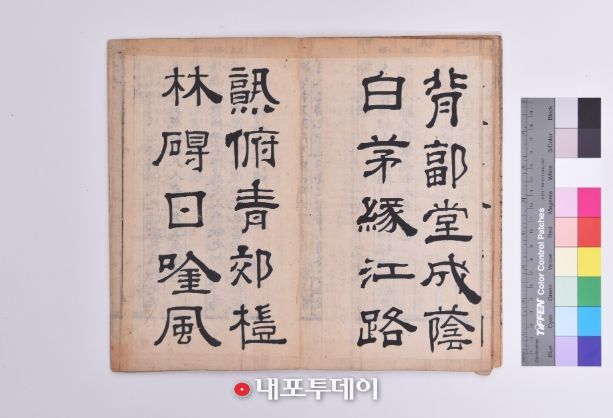 背郭堂成蔭
白茅緣江路
熟俯青郊榿
林碍日唫風
내포투데이
TIFFEN Color Control Patches
Black
3/Color
White
Magenta
Red
Yellow
Green
Cyan
Blue